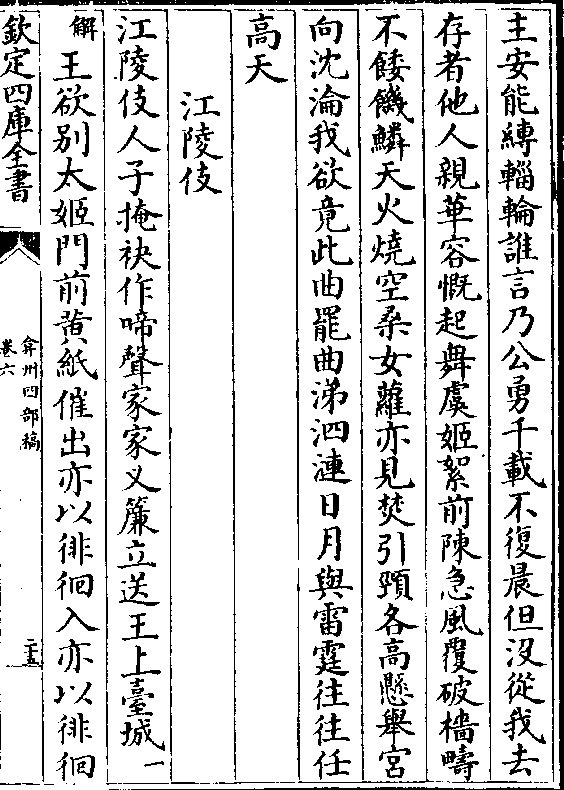 主安能縳輜輪誰言乃公勇千載不復晨但沒從我去
存者他人親華容慨起舞虞姬絮前陳急風覆破檣疇
不餧饑鱗天火燒空桑女蘿亦見焚引頸各高懸舉宮
向沈淪我欲竟此曲罷曲涕泗漣日月與雷霆往往任
高天
江陵伎
江陵伎人子掩袂作啼聲家家义簾立送王上臺城一
解王欲别太姬門前黄紙催出亦以徘徊入亦以徘徊
欽定四庫全書
弇州四部稿
卷六
二十五